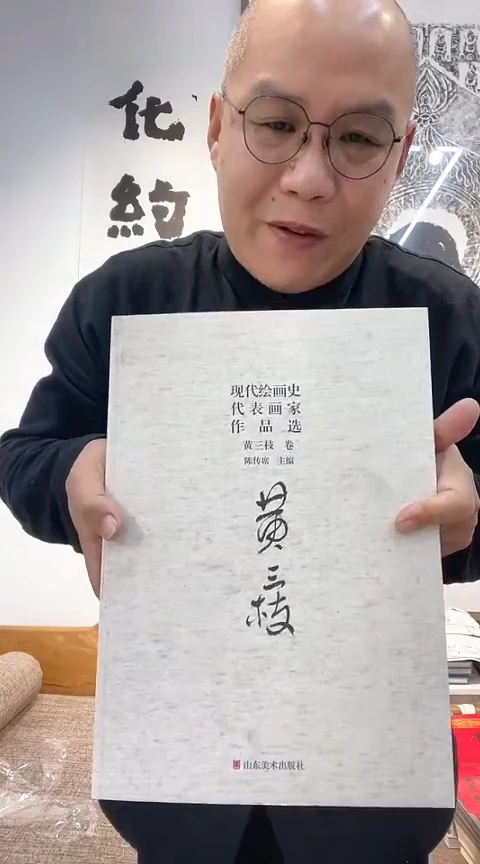 化
約
现代绘画史
代表画家
作品选
黄三枝 卷
陈传席 主编
黄三枝
山东美术出版社